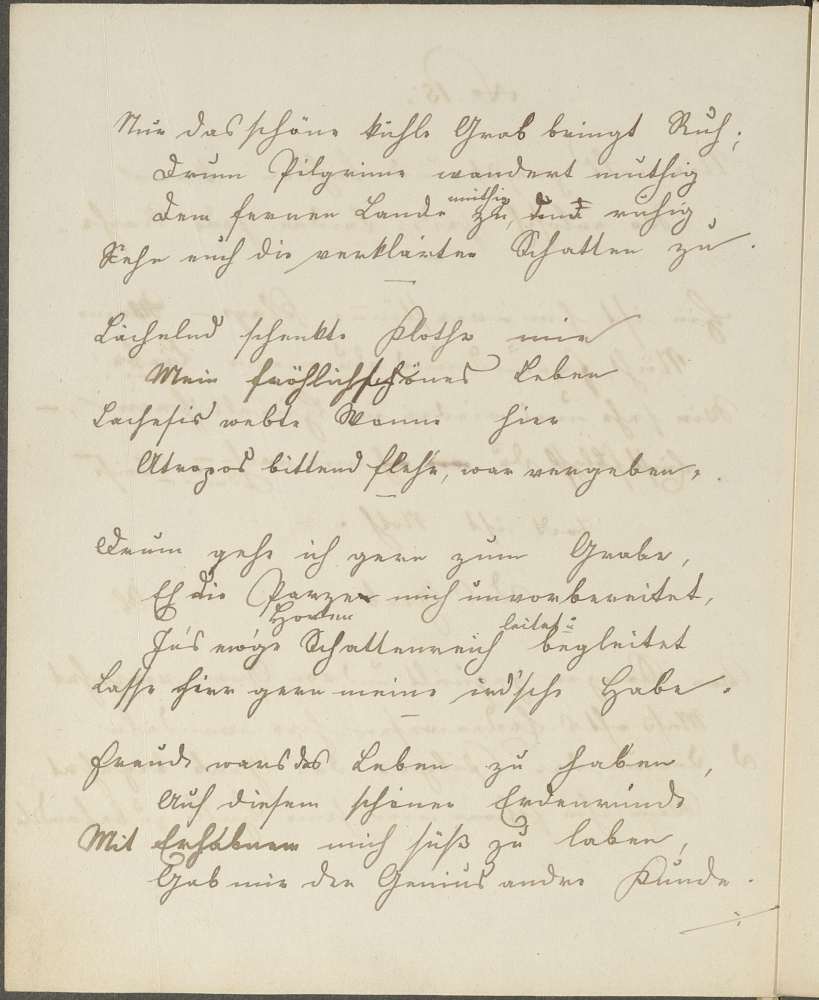 Nur das schöne kühle Grab bringt Ruh;
Drum Pilgrime wandert muthig
muthig
Dem fernen Lande zu, denn ruhig
Sehn euch die verklärten Schatten zu.
Lächelnd schenkte Klotho mir
Mein fröhlichschönes Leben
Lachesis webte Wonne hier
Atropos bittend flehn, war vergeben.
Drum gehe ich gern zum Grabe,
Eh die Parzen mich unvorbereitet,
Horen leitet
In's ew'ge Schattenreich begleitet
Lasse hier gern meine ird'sche Habe.
Freude wars das Leben zu haben,
Auf diesem schönen Erdenrunde
Mit Erhabnem mich süß zu laben,
Gab mir der Genius andre Kunde.